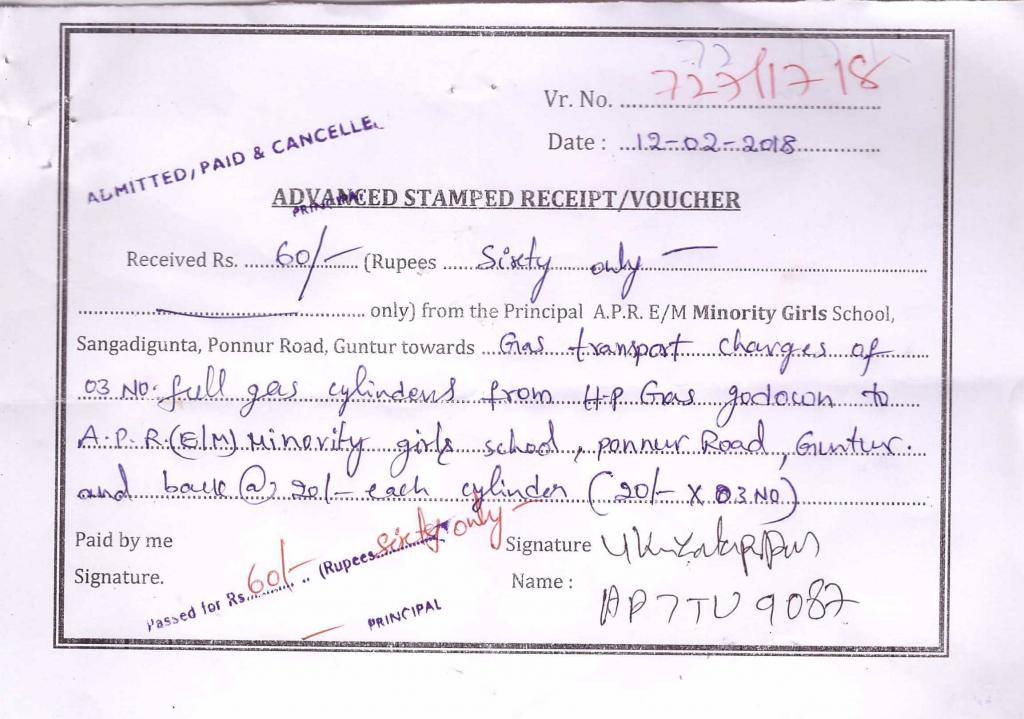 Vr. No. 727/17 18
Date : 12-02-2018
ADMITTED, PAID & CANCELLE
PRINCIPAL
ADVANCED STAMPED RECEIPT/VOUCHER
Received Rs. 60/- (Rupees Sixty only
only) from the Principal A.P.R. E/M Minority Girls School,
Sangadigunta, Ponnur Road, Guntur towards Gas transport charges of
03 No. full gas cylinders from H.P Gas godown to
A.P.R.(E/M) Minority girls school, ponnur Road, Guntur.
and back @ 20/- each cylinder (20/- X 03 NO)
Paid by me
Signature.
Passed for Rs. 60/- (Rupees sixty only
PRINCIPAL
Signature
Name : AP7TU 9087